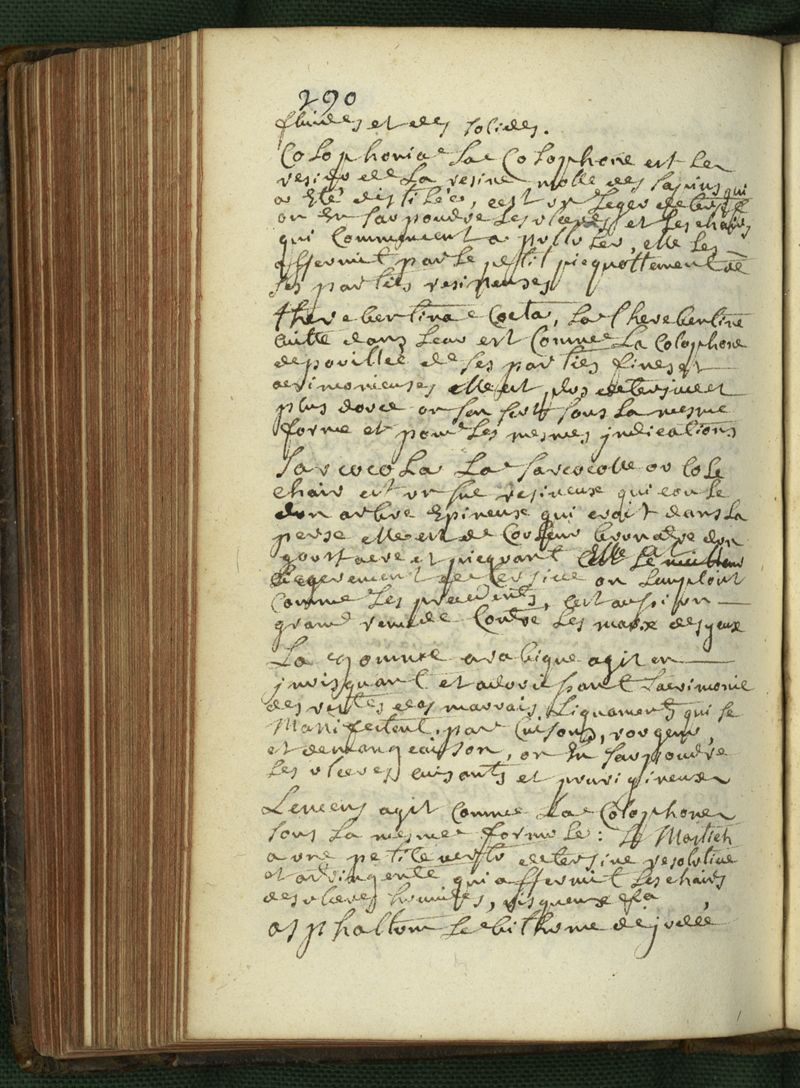 290
fluides et des solides.
Colophonia La Colophone est le
residu de La resine molle des sapins qui
a Eté distilée, cest un Leger detersif
on En saupoudre Les ulceres et Les chairs
qui Commencent a pulluler, elle les
affermit par Le petit picquottement de
ses parties resineuses
therebentina Cocta, La therebentine
cuitte dans Leau est Comme La Colophone
depouillée de ses parties fines et
acrimonieuses elle est plus detersive et
plus douce on sen sert sous La mesme
forme et pour Les mesmes jndications
Sarcocola La sarcocolle ou cole
chair est un suc resineux qui coule
dun arbre Epineux qui croit dans La
perse elle est de Couleur brunatre dun
goust acre et picquant elle est
Legerement detersive on Lemploit
Comme Les precedents, cest aussi un
grand remede Contre Les maux des yeux
La gomme arabique agit en
jnvisquant et adoucissant Lacrimonie
des ulceres des mauvais Ligaments qui se
Manifestent par Cuisons, rougeur,
et demangeaison, on En saupoudre
Les ulceres cuisants et prurigineux
Lencens agit Comme La Colophone
sous La mesme formule: Le Mastich
a une petite vertu detersive resolutive
et astringente qui affermit Les chairs
des ulceres humides, visqueux &a
asphaltum Le bithume de judée